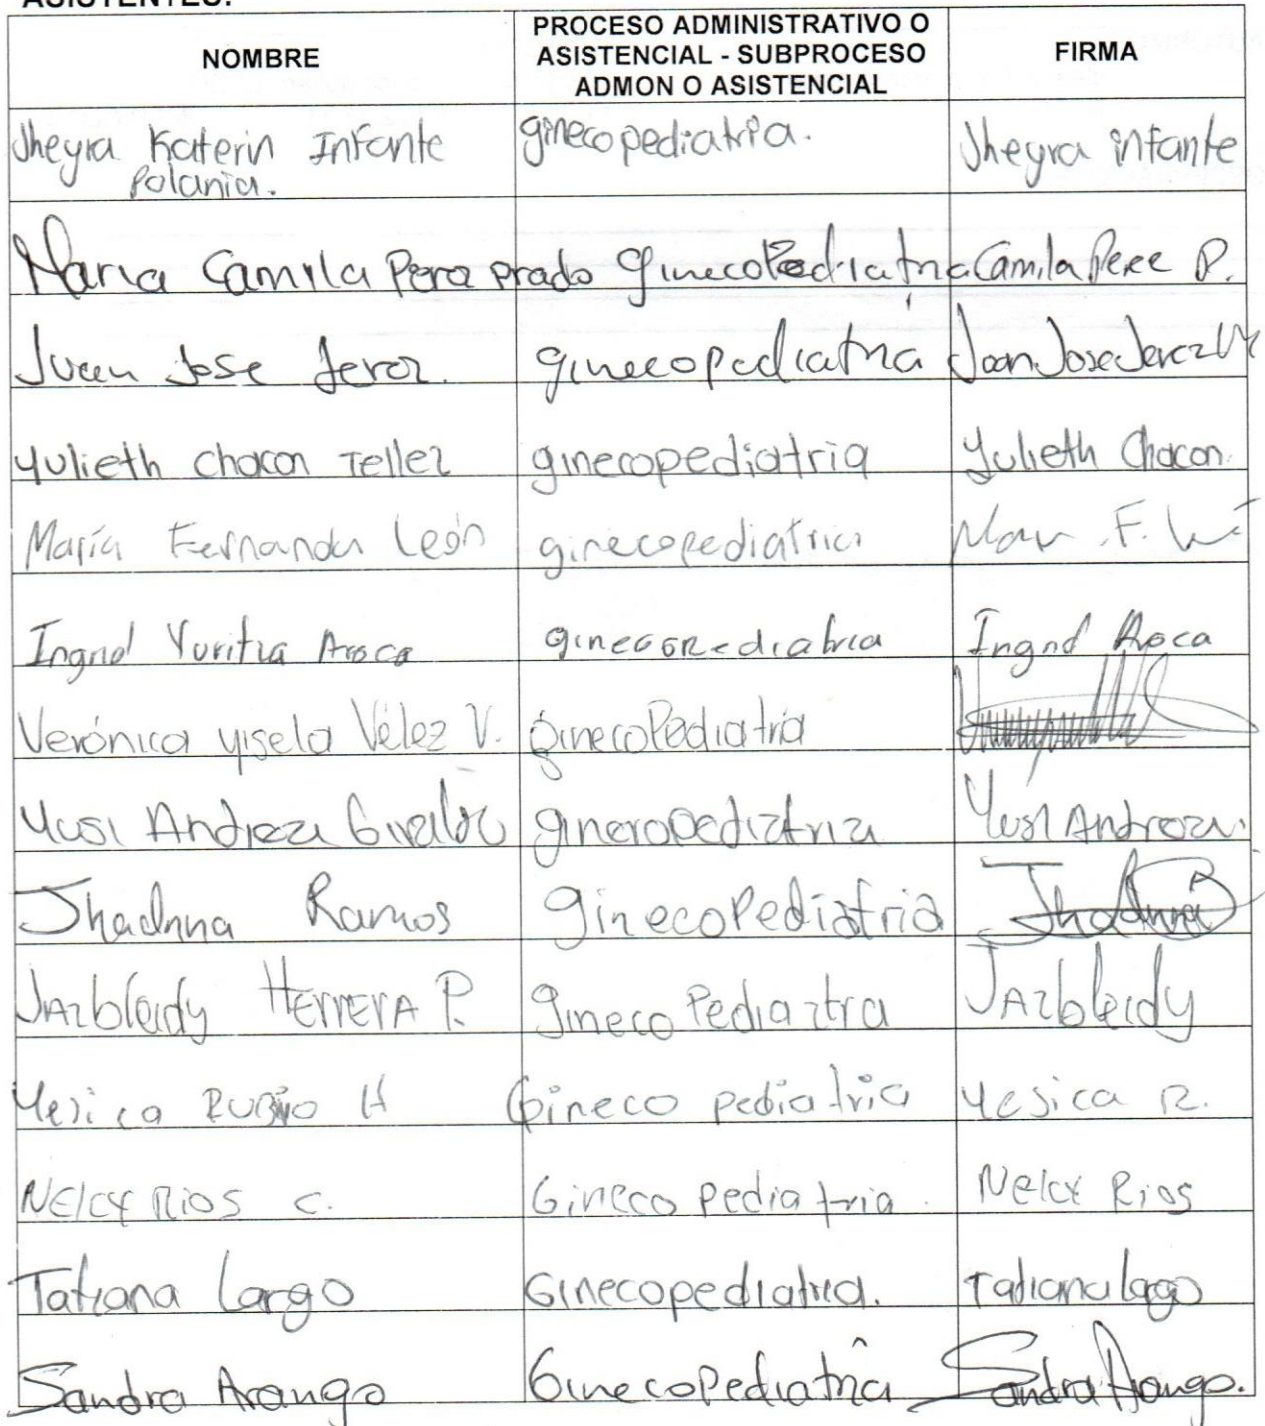 ASISTENTES:
NOMBRE
PROCESO ADMINISTRATIVO O
ASISTENCIAL - SUBPROCESO
ADMON O ASISTENCIAL
FIRMA
Jheyra Katerin Infante
Polania.
ginecopediatria.
Jheyra infante
Maria Camila Perez prado ginecoPediatria Camila Perez P.
Juan Jose Jerez. ginecopediatria Joan Jose Jerez
Yulieth chacon Tellez ginecopediatria Yulieth Chacon.
María Fernanda León ginecopediatria F.
Ingrid Yuritza Aroca ginecopediatria Ingrid Aroca
Verónica yisela Vélez V. ginecoPediatria
Yusi Andrea Giraldo ginecopediatria Yusi Andrea.
Jhadnna Ramos GinecoPediatria Jhadnna
JAzbleidy HerrerA P. gineco Pediaztra JAzbleidy
Yesica RUBIO H Gineco pediatria Yesica R.
NELCY RIOS C. Gineco pediatria. Nelcy Rios
Tatiana Largo Ginecopediatria. Tatiana Lago
Sandra Arango GinecoPediatria Sandra Arango.